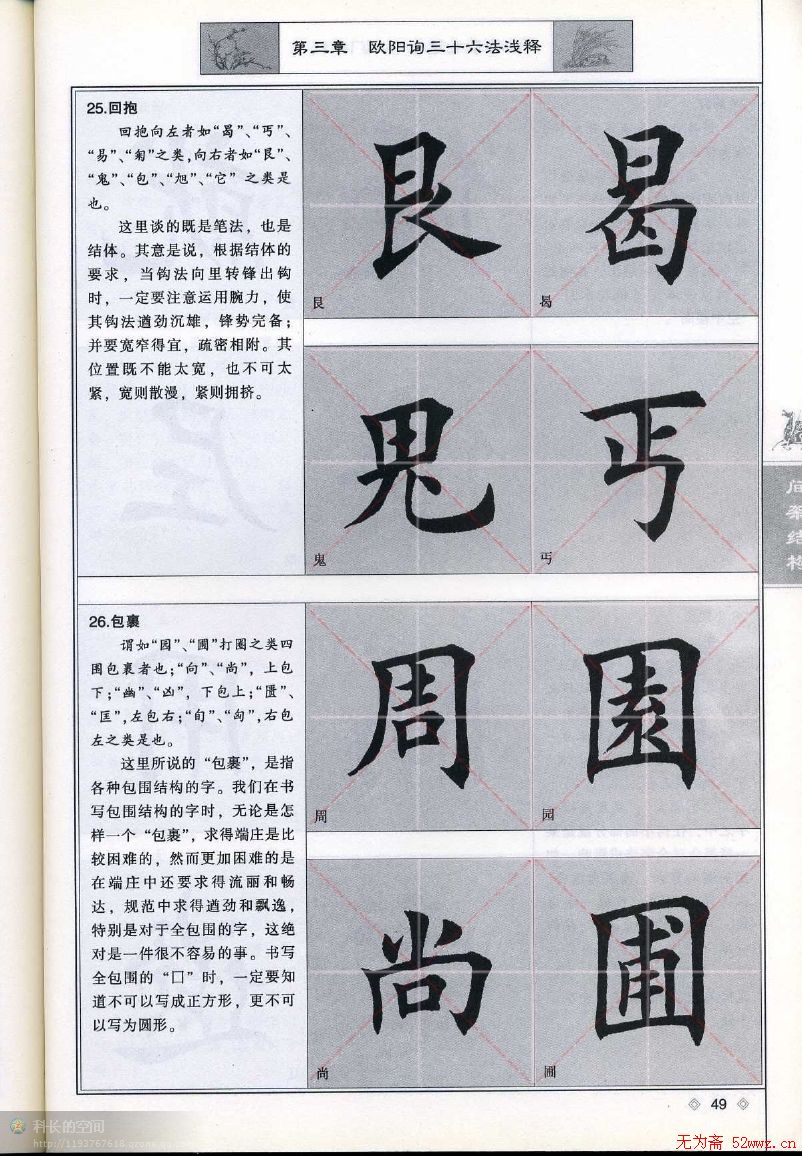 第三章 欧阳询三十六法浅释
25.回抱
回抱向左者如“曷”、“丐”、
“易”、“匊”之类,向右者如“艮”、
“鬼”、“包”、“旭”、“它”之类是
也。
这里谈的既是笔法，也是
结体。其意是说，根据结体的
要求，当钩法向里转锋出钩
时，一定要注意运用腕力，使
其钩法遒劲沉雄，锋势完备；
并要宽窄得宜，疏密相附。其
位置既不能太宽，也不可太
紧，宽则散漫，紧则拥挤。
艮
曷
艮
曷
鬼
丐
鬼
丐
26.包裹
谓如“园”、“圃”打圈之类四
围包裹者也;“向”、“尚”，上包
下;“幽”、“凶”，下包上;“匮”、
“匡”,左包右;“旬”、“匈”,右包
左之类是也。
这里所说的“包裹”，是指
各种包围结构的字。我们在书
写包围结构的字时，无论是怎
样一个“包裹”，求得端庄是比
较困难的，然而更加困难的是
在端庄中还要求得流丽和畅
达，规范中求得遒劲和飘逸，
特别是对于全包围的字，这绝
对是一件很不容易的事。书写
全包围的“囗”时，一定要知
道不可以写成正方形，更不可
以写为圆形。
周
園
周
园
尚
圃
尚
圃
间架结构
49
科长的空间
无为斋 52wwz.cn